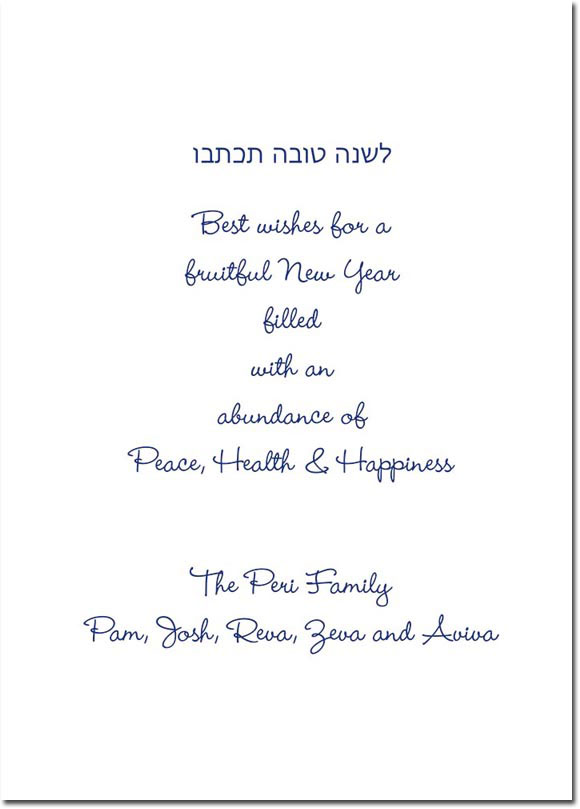 לשנה טובה תכתבו
Best wishes for a
fruitful New Year
filled
with an
abundance of
Peace, Health & Happiness
The Peri Family
Pam, Josh, Reva, Zeva and Aviva